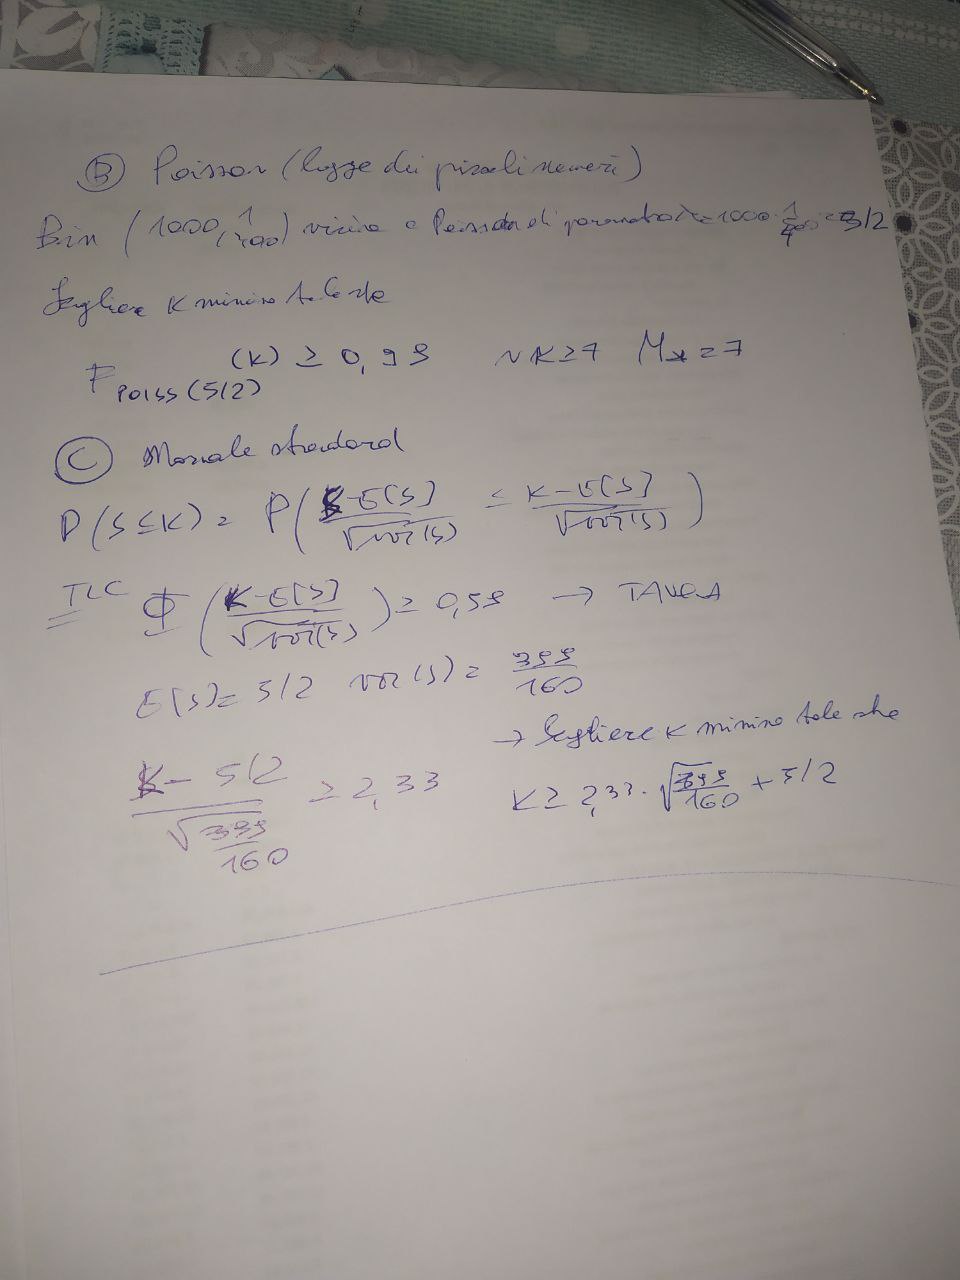 Ⓑ Poisson (legge dei piccoli numeri)
Bin (1000, 1/400) vicina a Poisson di parametro λ=1000·1/400=5/2
Scegliere K minimo tale che
F_Poiss(5/2) (K) ≥ 0,99 ~ K≥7 M_* = 7
Ⓒ Normale standard
P(S≤K) = P( (S-E[S])/√var(S) ≤ (K-E[S])/√var(S) )
TLC Φ( (K-E[S])/√var(S) ) ≥ 0,99 → TAVOLA
E[S]= 5/2 var(S) = 399/160
→ Scegliere K minimo tale che
(K - 5/2)/√(399/160) ≥ 2,33 K ≥ 2,33 · √(399/160) + 5/2